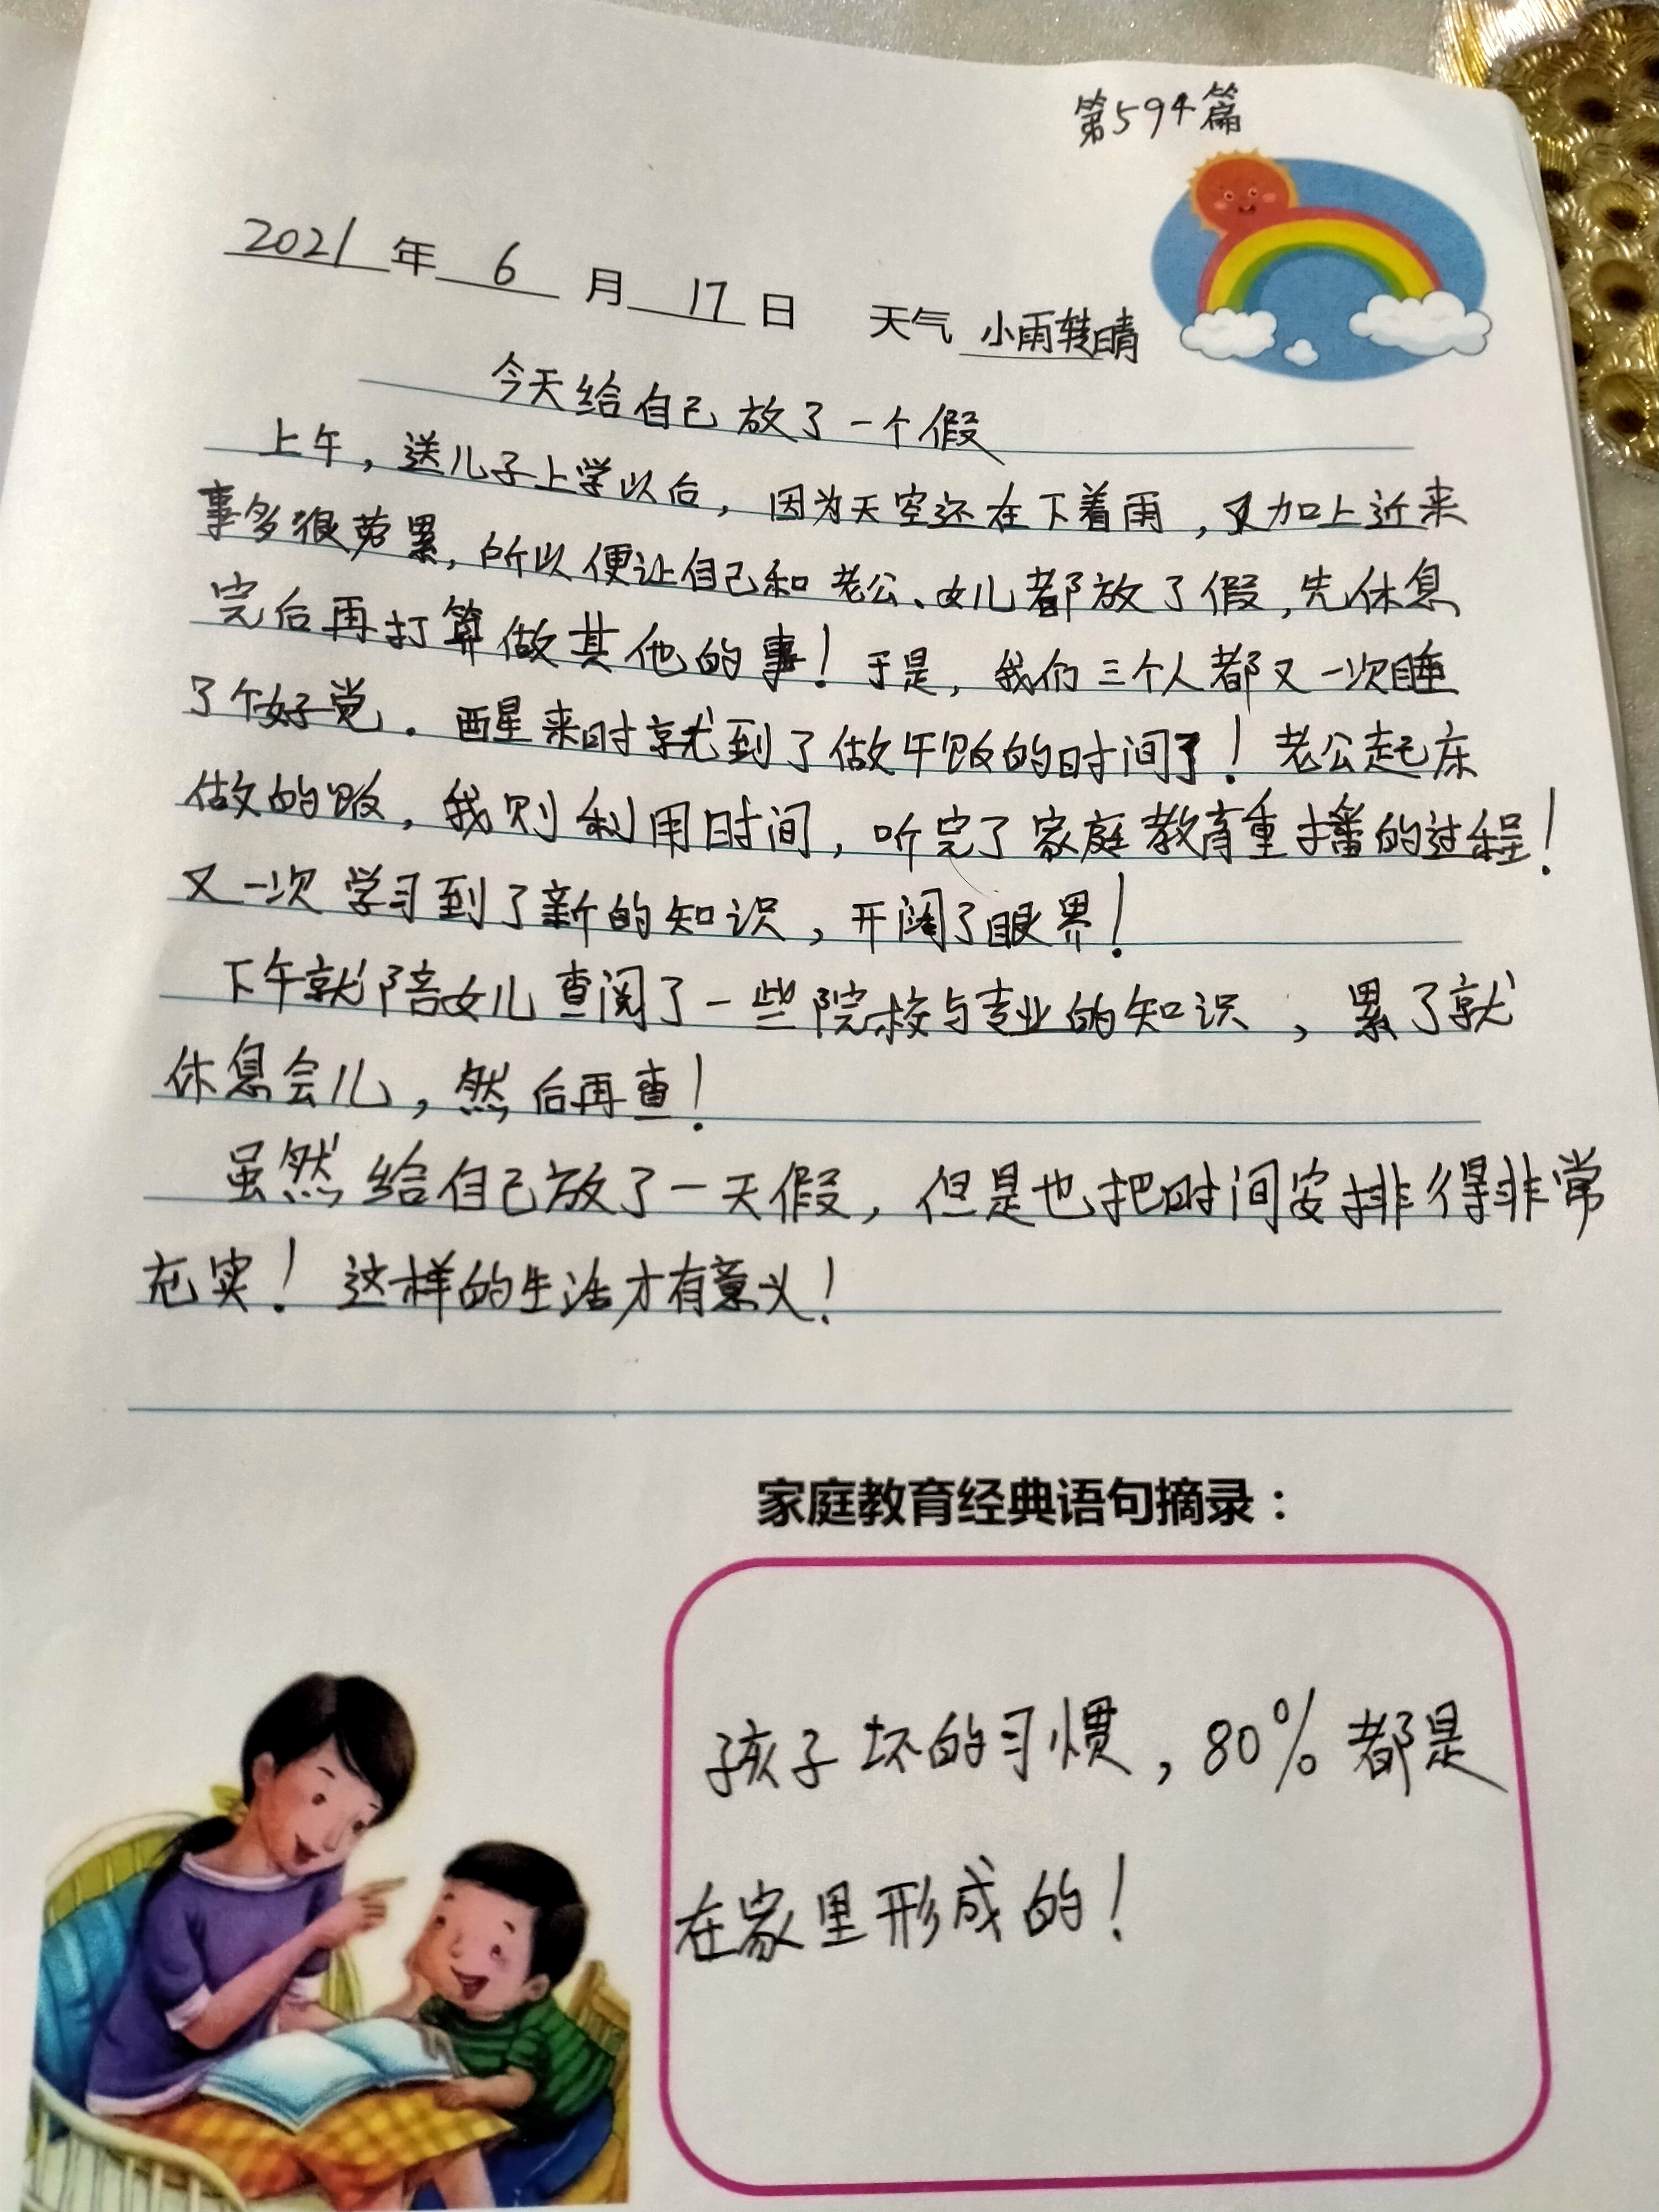 第594篇
2021年6月17日 天气 小雨转晴
今天给自己放了一个假
上午，送儿子上学以后，因为天空还在下着雨，又加上近来
事多很劳累，所以便让自己和老公、女儿都放了假，先休息
完后再打算做其他的事！于是，我们三个人都又一次睡
了个好觉。醒来时就到了做午饭的时间了！老公起床
做的饭，我则利用时间，听完了家庭教育重播的过程！
又一次学习到了新的知识，开阔了眼界！
下午就陪女儿查阅了一些院校与专业的知识，累了就
休息会儿，然后再查！
虽然给自己放了一天假，但是也把时间安排得非常
充实！这样的生活才有意义！
家庭教育经典语句摘录：
孩子坏的习惯，80%都是
在家里形成的！